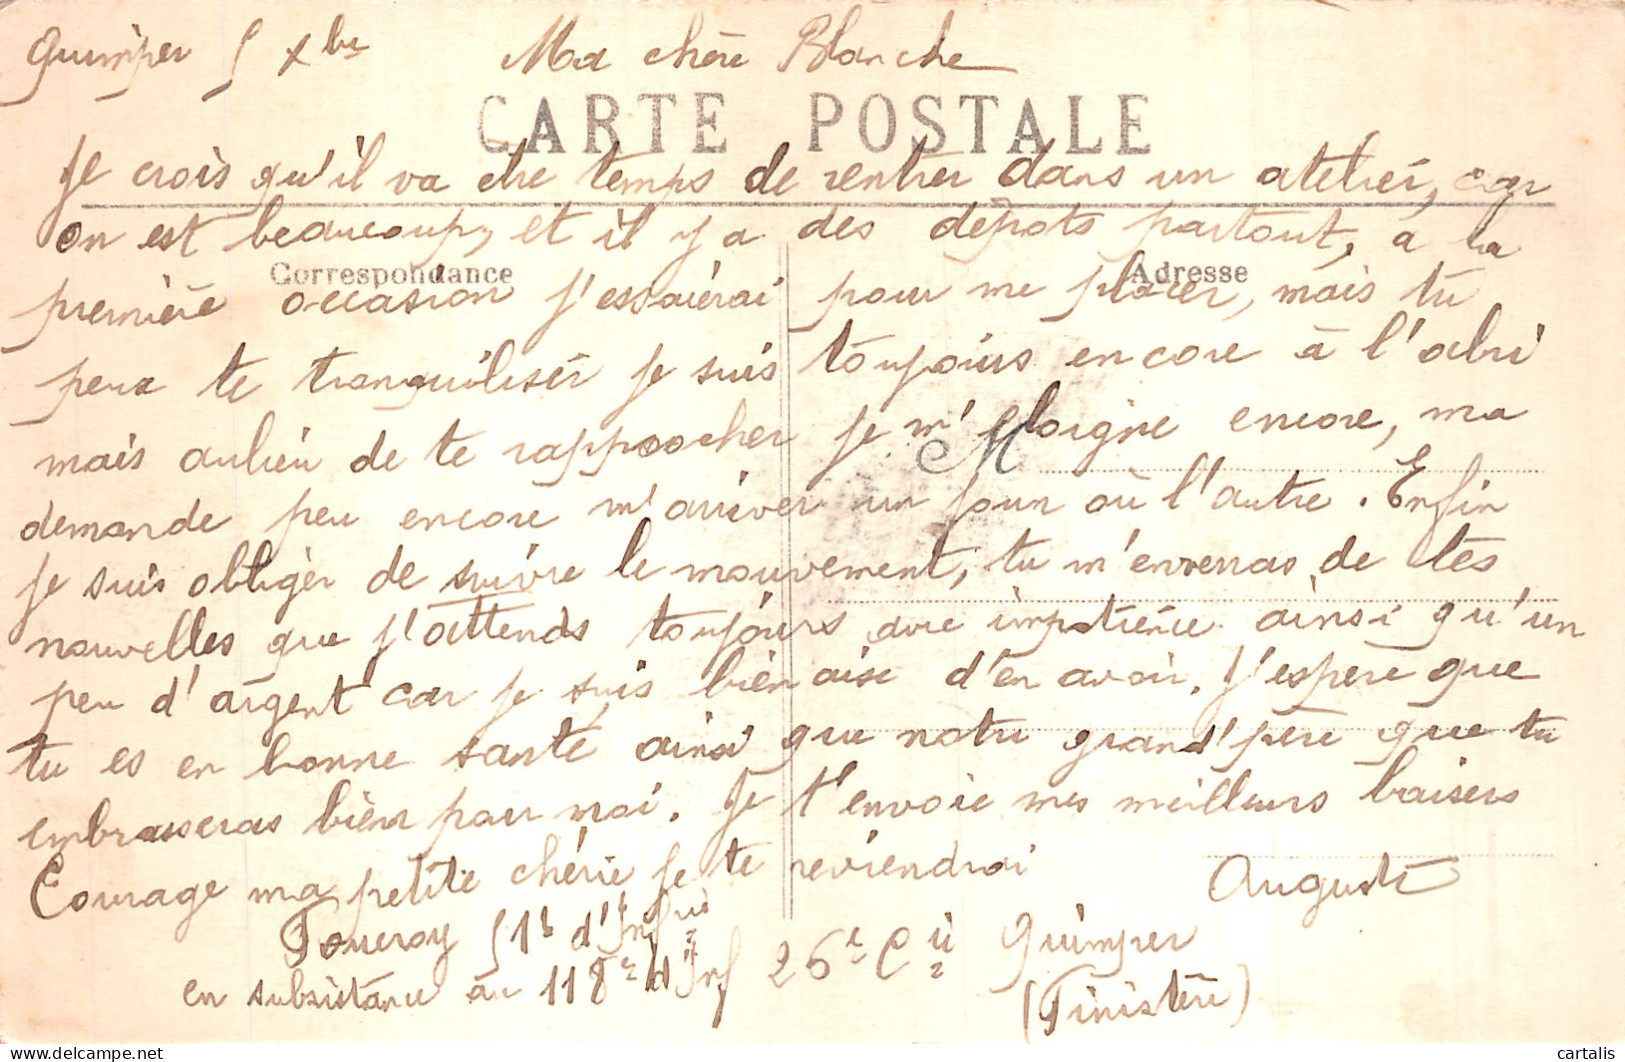 Quimper 5 Xbre Ma chère Blanche
CARTE POSTALE
Je crois qu'il va etre temps de rentrer dans un atelier, car
on est beaucoup, et il y a des dépots partout, a la
Correspondance Adresse
première occasion j'essaierai pour me placer, mais tu
peux te tranquiliser je suis toujours encore à l'abri
mais aulieu de te rapprocher je m'eloigne encore, ma
M
demande peu encore m'arriver un jour où l'autre. Enfin
je suis obliger de suivre le mouvement, tu m'enverras de tes
nouvelles que j'attends toujours avec impatience ainsi qu'un
peu d'argent car je suis bien aise d'en avoir. J'espère que
tu es en bonne santé ainsi que notre grand'père que tu
embrasseras bien pour moi. Je t'envoie mes meilleurs baisers
Courage ma petite chérie je te reviendrai Auguste
51e d'Infrie 26e Cie Quimper
en subsistance au 118e d'Inf (Finistère)
cartalis